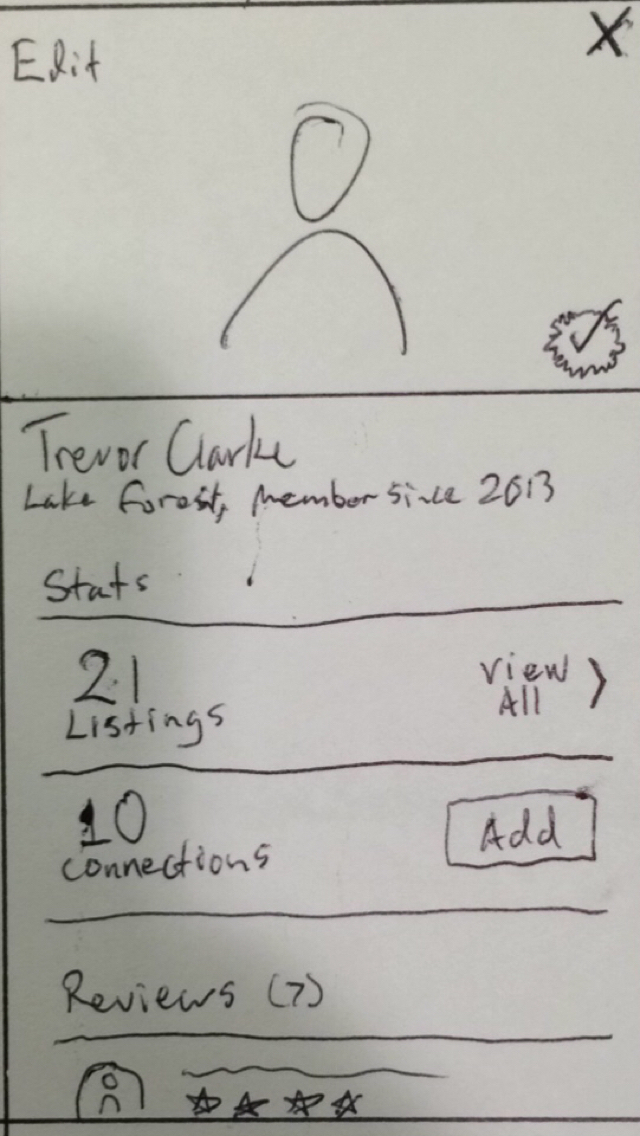 Edit X
Trevor Clarke
Lake Forest, Member Since 2013
Stats
21
Listings
View
All >
10
connections
Add
Reviews (7)